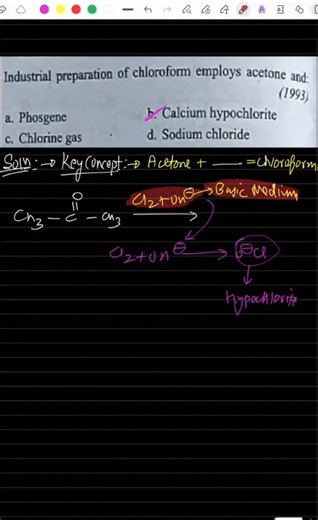 Industrial preparation of chloroform employs acetone and:
(1993)
a. Phosgene
b. Calcium hypochlorite
c. Chlorine gas
d. Sodium chloride
Soln:→ Key Concept:→ Acetone + ___ = chloroform
Cl2 + OH⊖ → Basic Medium
O
CH3 - C - CH3
Cl2 + OH⊖ → ⊖OCl
Hypochlorite